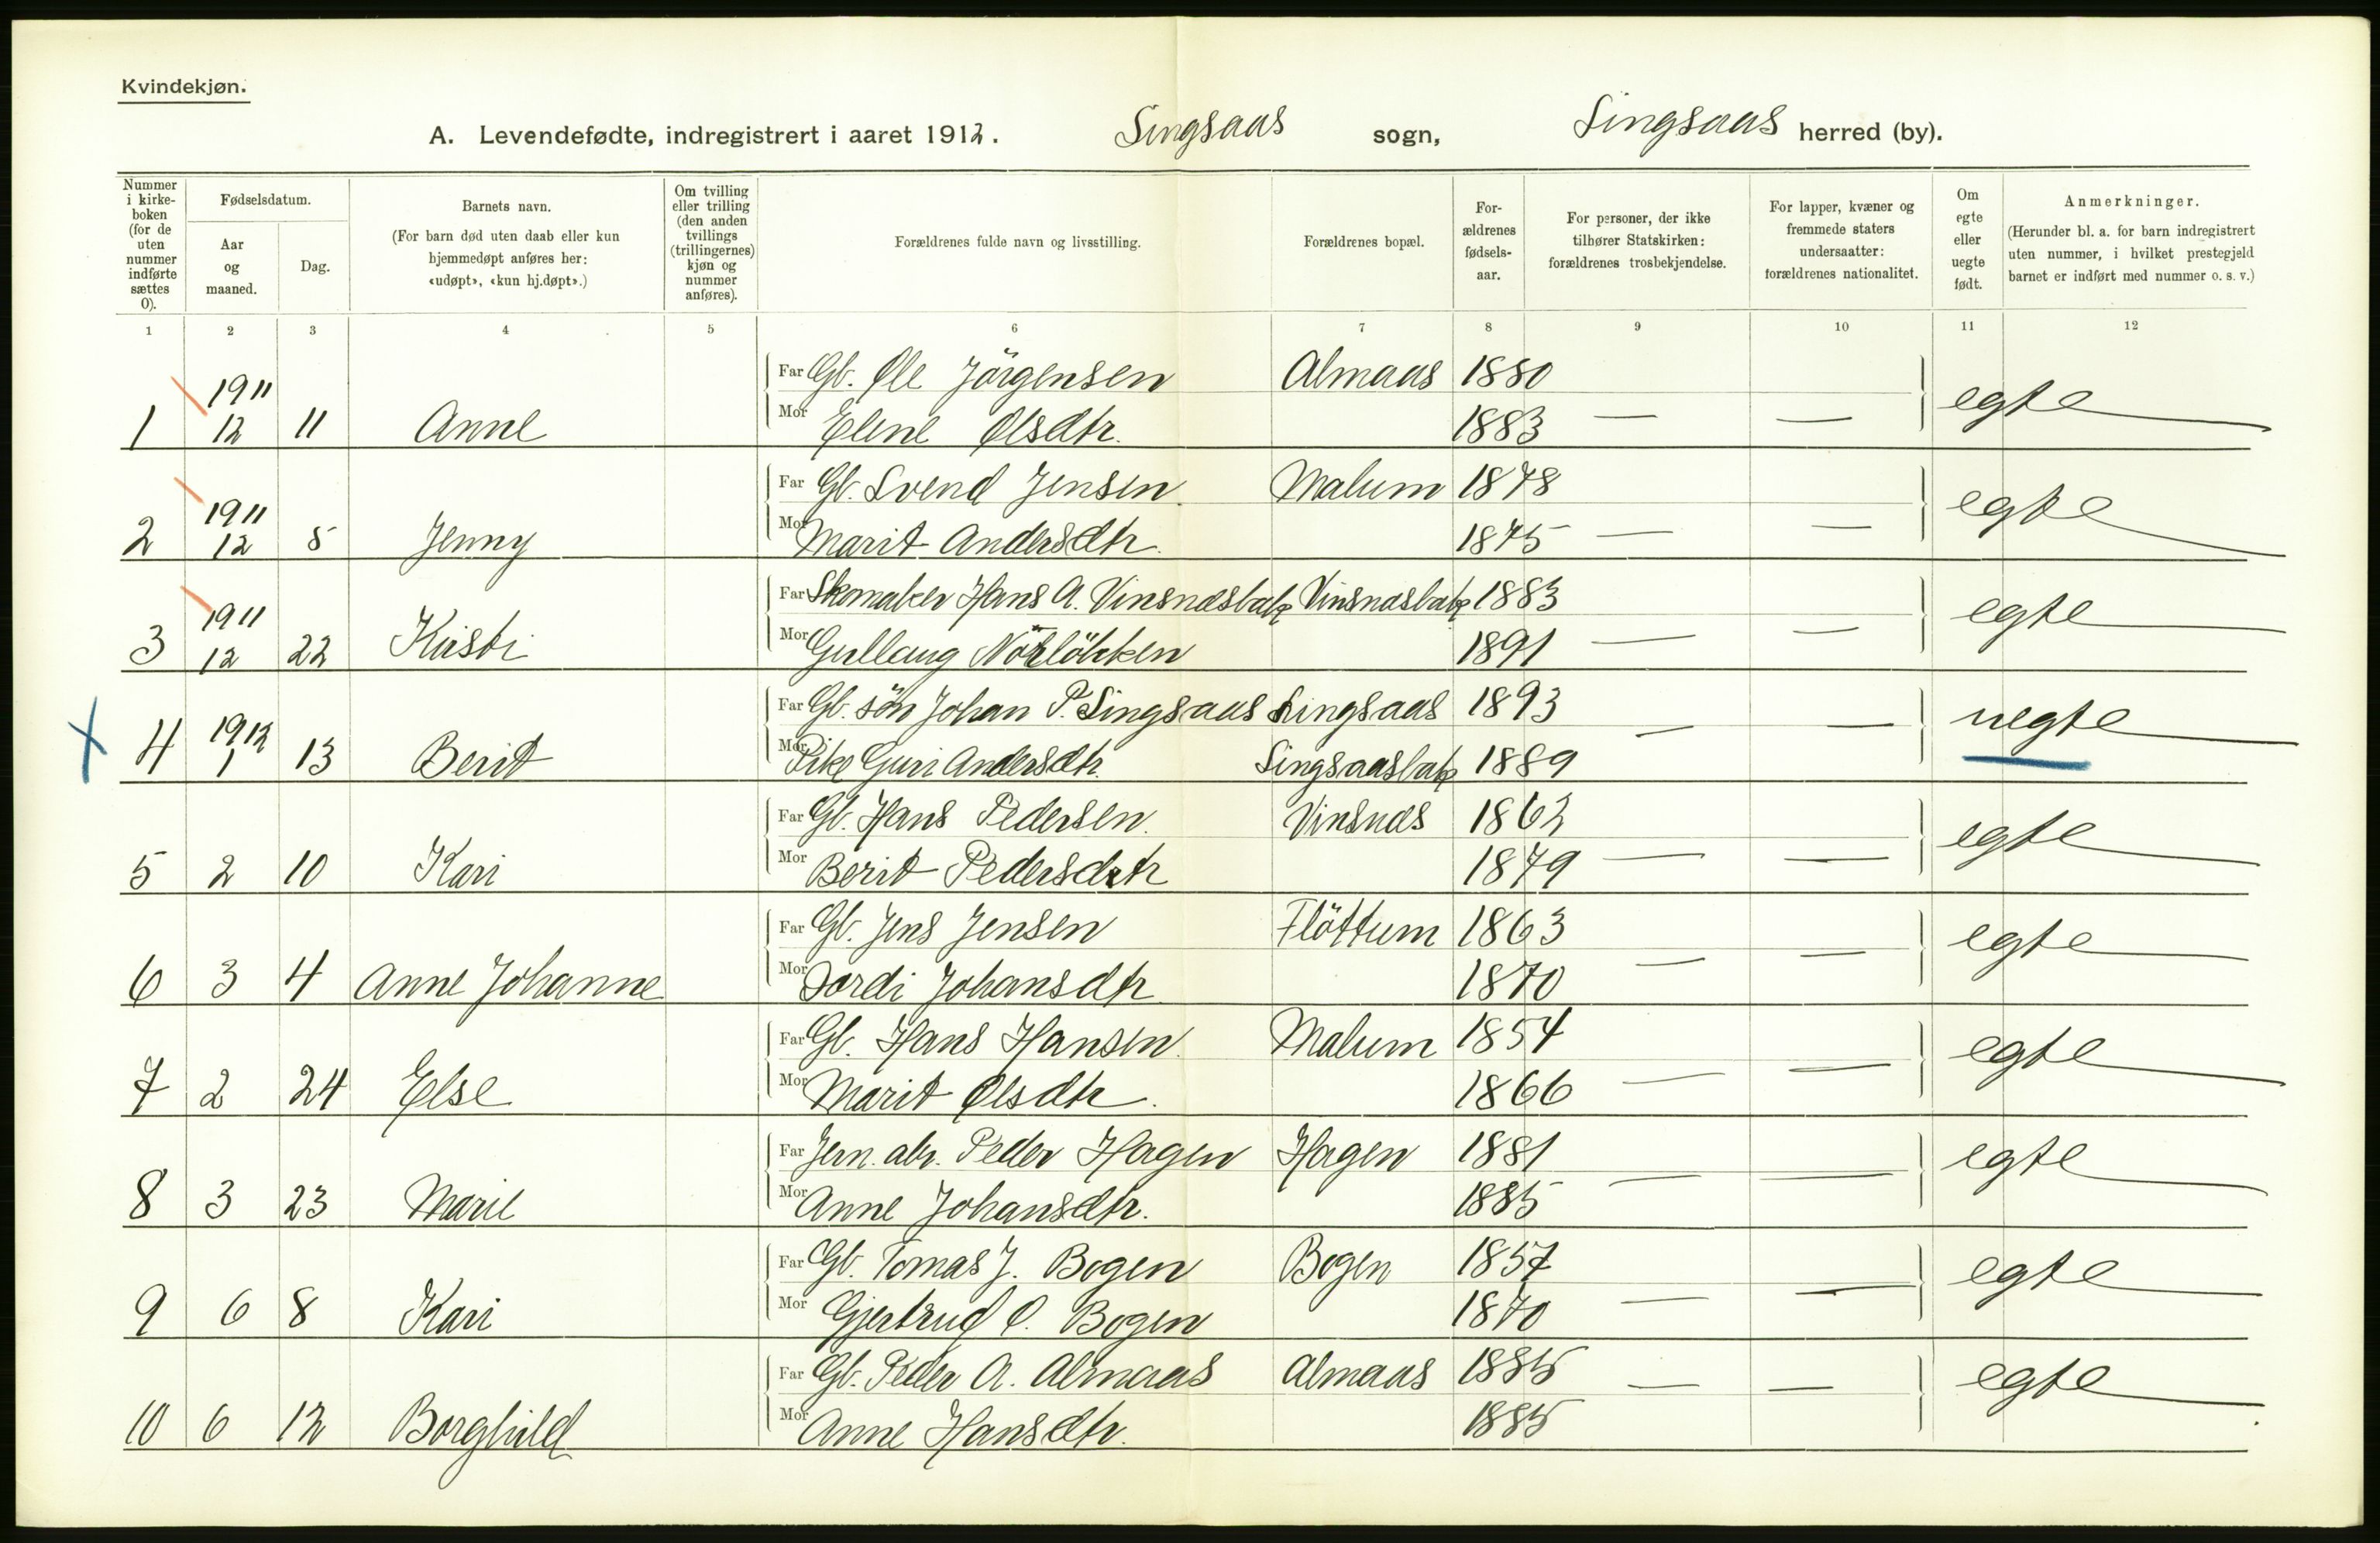 Kvindekjøn.
A. Levendefødte, indregistrert i aaret 1912. Singsaas sogn, Singsaas herred (by).
Nummer i kirke-boken (for de uten nummer indførte sættes 0).
Fødselsdatum.
Aar og maaned.
Dag.
Barnets navn.
(For barn død uten daab eller kun hjemmedøpt anføres her: «udøpt», «kun hj.døpt».)
Om tvilling eller trilling (den anden tvillings (trillingernes) kjøn og nummer anføres).
Forældrenes fulde navn og livsstilling.
Forældrenes bopæl.
For-ældrenes fødsels-aar.
For personer, der ikke tilhører Statskirken: forældrenes trosbekjendelse.
For lapper, kvæner og fremmede staters undersaatter: forældrenes nationalitet.
Om egte eller uegte født.
Anmerkninger.
(Herunder bl. a. for barn indregistrert uten nummer, i hvilket prestegjeld barnet er indført med nummer o. s. v.)
1 2 3 4 5 6 7 8 9 10 11 12
Far Gb. Ole Jörgensen Almaas 1880
1 1911 12 11 Anne Mor Elene Olsdtr. 1883 — — egte
Far Gb. Svend Jensen Malum 1878
2 1911 12 5 Jenny Mor Marit Andersdtr. 1875 — — egte
Far Skomaker Hans A. Vinsnesbak Vinsnesbak 1883
3 1911 12 22 Kristi Mor Gullaug Nörlökken 1891 — — egte
Far Gb. sön Johan P. Singsaas Singsaas 1893
4 1912 1 13 Berit Mor Pike Guri Andersdtr. Singsaasbak 1889 — — uegte
Far Gb. Hans Pedersen. Vinsnes 1862
5 2 10 Kari Mor Berit Pedersdtr 1879 — — egte
Far Gb. Jens Jensen Flöttum 1863
6 3 4 Anne Johanne Mor Jordi Johansdtr. 1870 — — egte
Far Gb. Hans Hansen. Malum 1854
7 2 24 Else Mor Marit Olsdtr. 1866 — — egte
Far Jern. abr. Peder Hagen Hagen 1881
8 3 23 Marie Mor Anne Johansdtr. 1885 — — egte
Far Gb. Tomas J. Bogen Bogen 1857
9 6 8 Kari Mor Gjertrud O. Bogen 1870 — — egte
Far Gb. Peder A. Almaas Almaas 1885
10 6 12 Borghild Mor Anne Hansdtr. 1885 — — egte